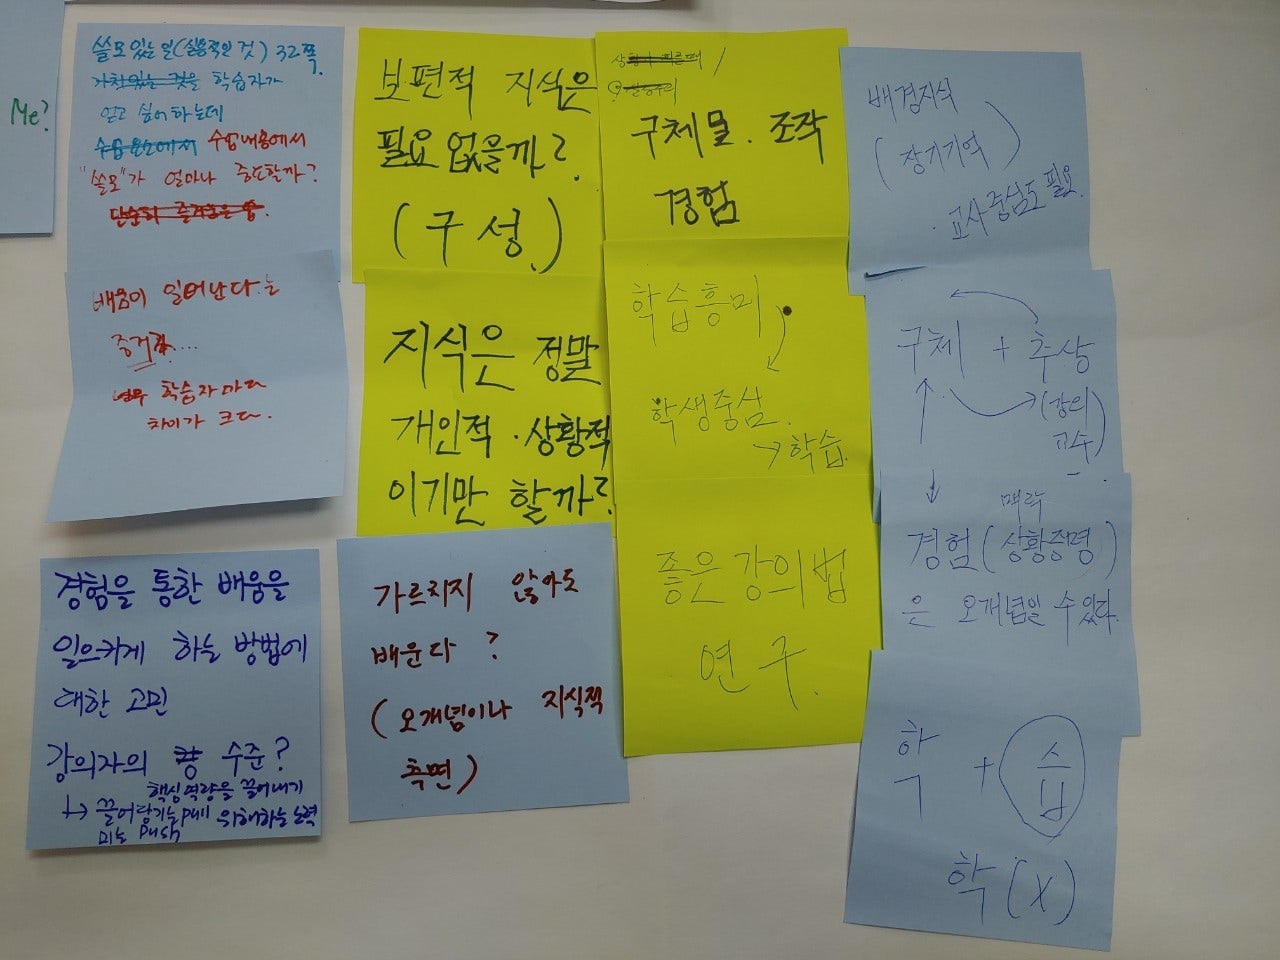 Me?
쓸모있는 일(실용적인 것) 32쪽.
가치있는 것을 학습자가
얻고 싶어하는데
수업내용에서
"쓸모"가 얼마나 중요할까?
배움이 일어난다는
증거...
학습자마다
차이가 크다.
경험을 통한 배움을
일으키게 하는 방법에
대한 고민
강의자의 수준?
핵심역량을 끌어내기
↳ 끌어당기는 pull 위해하는 노력
미는 push
보편적 지식은
필요 없을까?
(구성.)
지식은 정말
개인적·상황적
이기만 할까?
가르치지 않아도
배운다?
(오개념이나 지식적
측면)
구체물. 조작
경험
학습흥미
학생중심.
→ 학습.
좋은 강의법
연구.
배경지식
(장기기억)
· 교사중심도 필요.
구체 + 추상
(강의
교수)
맥락
경험(상황증명)
은 오개념일 수 있다.
학 + 습
학(X)